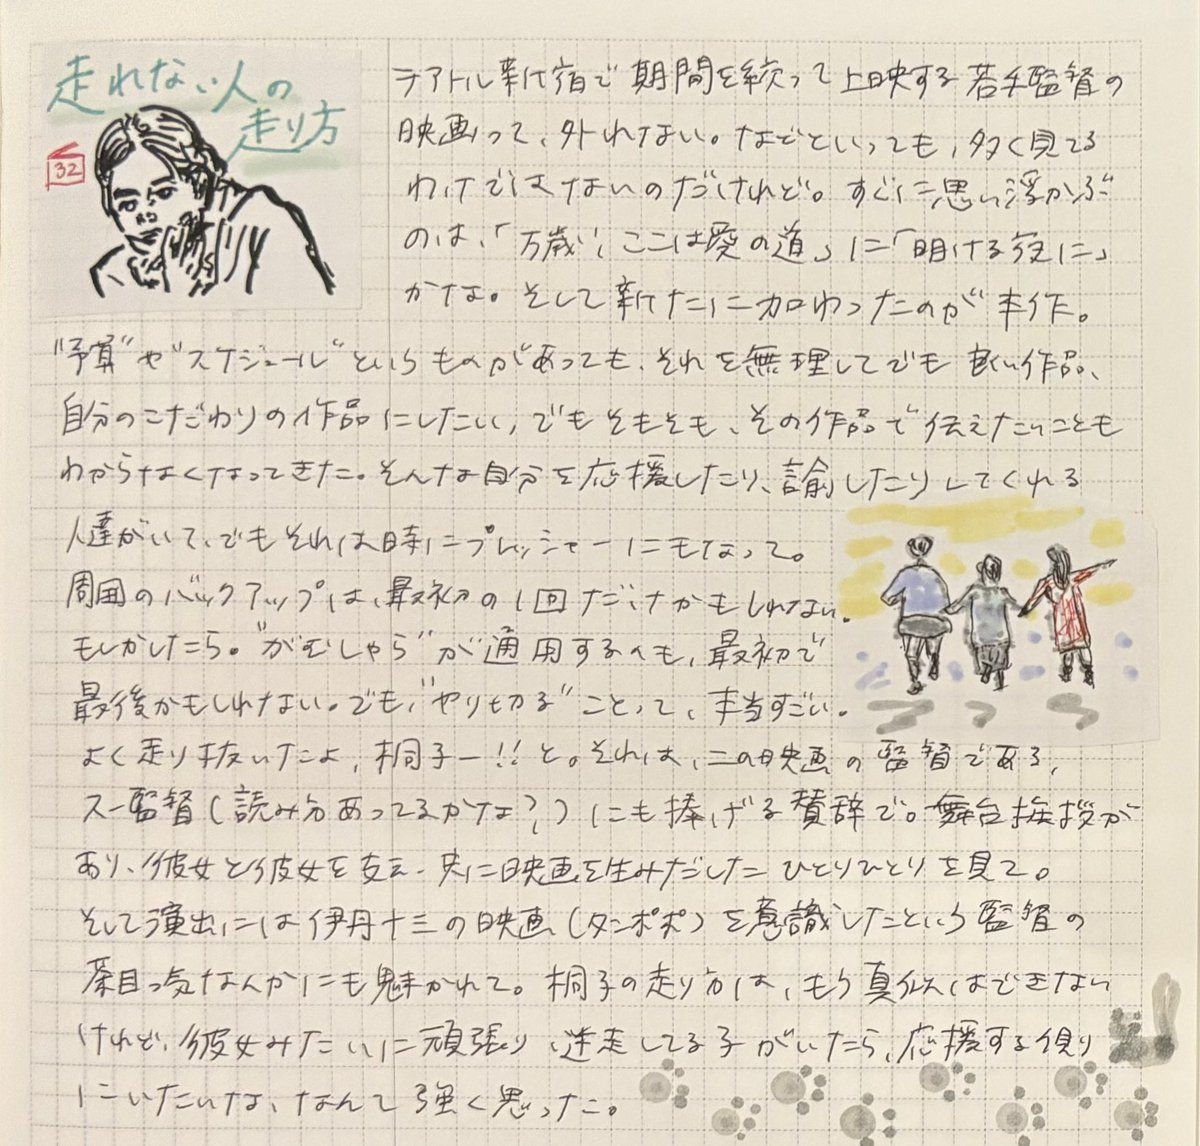 走れない人の
走り方
32
テアトル新宿で期間を絞って上映する若手監督の
映画って、外れない。なでといっても、多く見てる
わけではないのだけれど。すぐに思い浮かぶ
のは、「万歳!ここは愛の道」に「明ける夜に」
かな。そして新たに加わったのが本作。
"予算"や"スケジュール"というものがあっても、それを無理してでも良い作品、
自分のこだわりの作品にしたい、でもそもそも、その作品で伝えたいことも
わからなくなってきた。そんな自分を応援したり、諭したりしてくれる
人達がいて、でもそれは時にプレッシャーにもなって。
周囲のバックアップは、最初の1回だけかもしれない。
もしかしたら。"がむしゃら"が通用するへも、最初で
最後かもしれない。でも、"やり切る"ことって、本当すごい。
よく走り抜いたよ、桐子ー!!と。それは、この映画の監督である、
スー監督(読み方あってるかな?)にも捧げる賛辞で。舞台挨拶が
あり、彼女と彼女を支え、共に映画を生みだしたひとりひとりを見て。
そして演出には伊丹十三の映画(タンポポ)を意識したという監督の
茶目っ気なんかにも魅かれて。桐子の走り方は、もう真似はできない
けれど、彼女みたいに頑張り、迷走してる子がいたら、応援する側り
にいたいな、なんて強く思った。